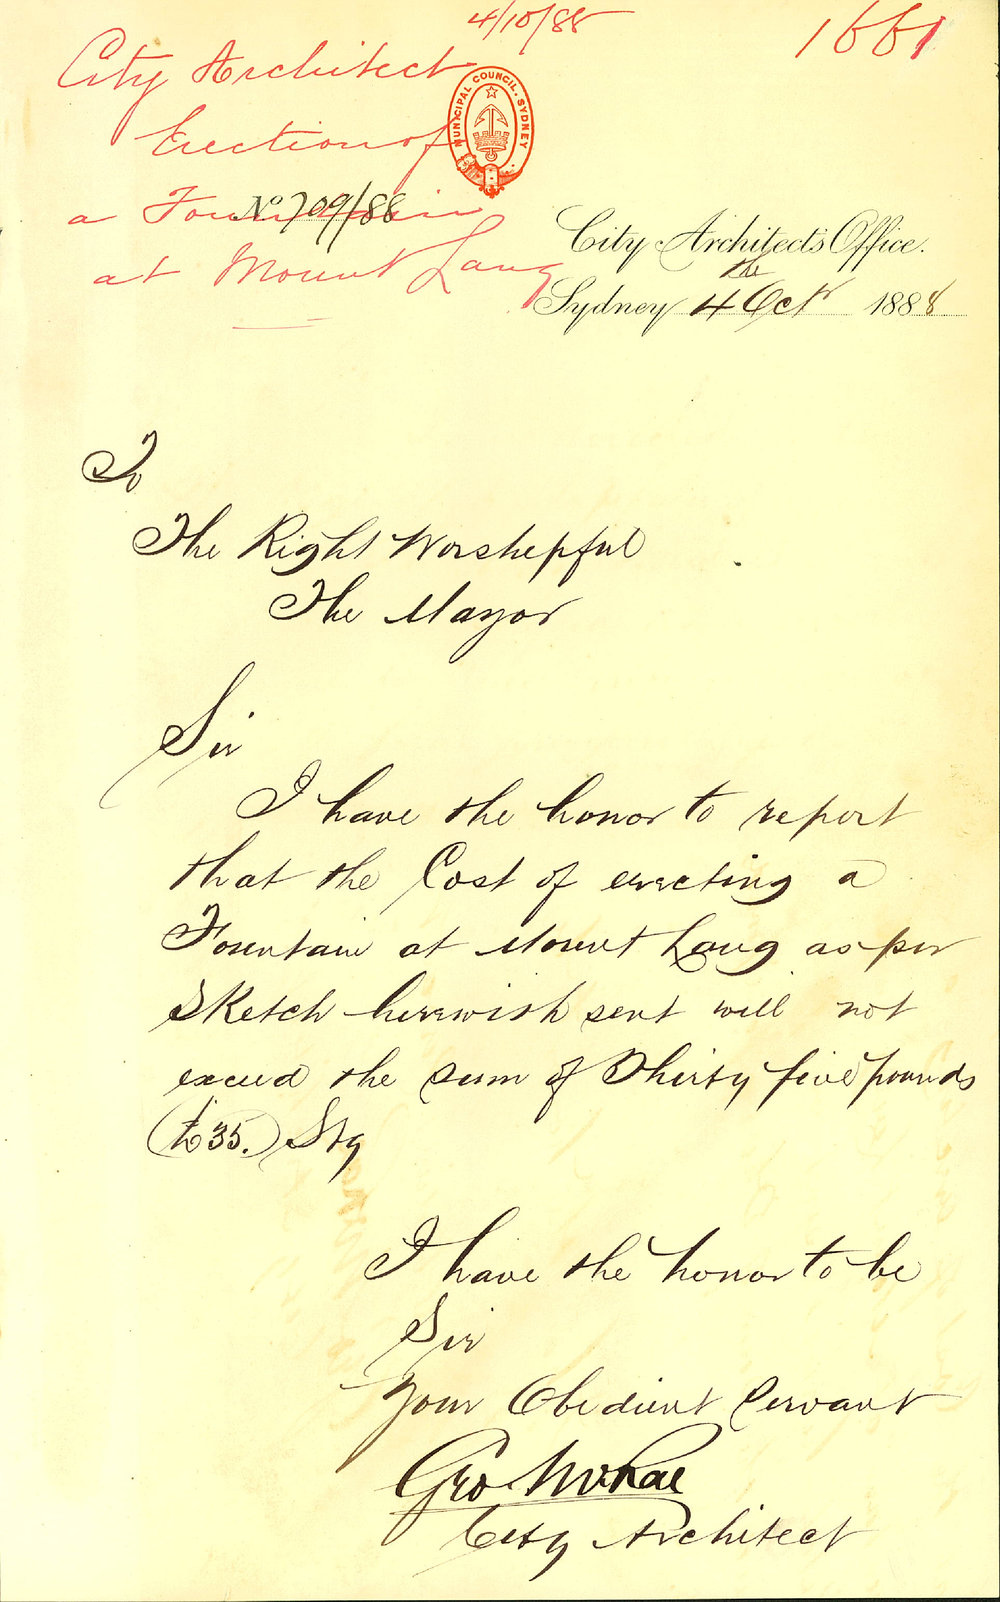 4/10/88
1661
City Architect
Erection of
a Fountain
No 709/88
at Mount Lang
MUNICIPAL COUNCIL. SYDNEY
City Architects Office.
Sydney 4th Oct 1888
To
The Right Worshepful
The Mayor
Sir
I have the honor to report
that the Cost of erecting a
Fountain at Mount Lang as per
Sketch herewith sent will not
exceed the sum of Thirty five pounds
(£35.) Stg
I have the honor to be
Sir
Your Obedient Servant
Geo McRae
City Architect